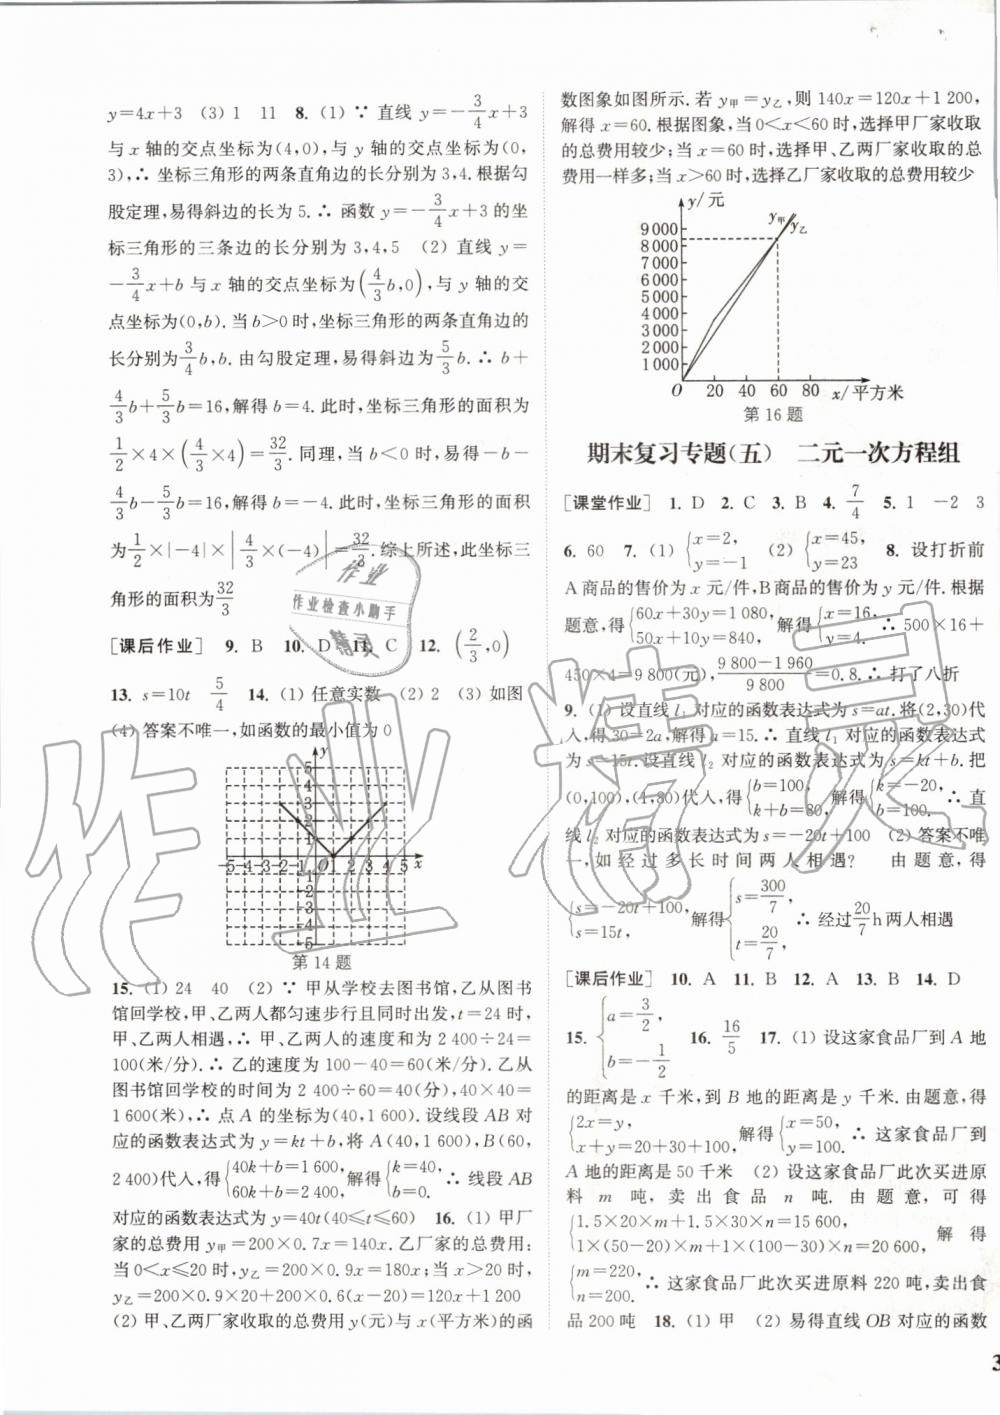 y=4x+3　(3) 1　11　8. (1) ∵ 直线 y=-3/4x+3
与 x 轴的交点坐标为(4,0),与 y 轴的交点坐标为(0,
3),∴ 坐标三角形的两条直角边的长分别为 3,4. 根据勾
股定理,易得斜边的长为 5. ∴ 函数 y=-3/4x+3 的坐
标三角形的三条边的长分别为 3,4,5　(2) 直线 y=
-3/4x+b 与 x 轴的交点坐标为(4/3b,0),与 y 轴的交
点坐标为(0,b). 当 b>0 时,坐标三角形的两条直角边的
长分别为3/4b,b. 由勾股定理,易得斜边为5/3b. ∴ b+
4/3b+5/3b=16,解得 b=4. 此时,坐标三角形的面积为
1/2×4×(4/3×4)=32/3. 同理,当 b<0 时,可得-b-
4/3b-5/3b=16,解得 b=-4. 此时,坐标三角形的面积
为1/2×|-4|×|4/3×(-4)|=32/3. 综上所述,此坐标三
角形的面积为32/3
[课后作业]　9. B　10. D　11. C　12. (2/3,0)
13. s=10t　5/4　14. (1) 任意实数　(2) 2　(3) 如图
(4) 答案不唯一,如函数的最小值为 0
y
5
4
3
2
1
-5-4-3-2-1 O 1 2 3 4 5 x
-1
-2
-3
-4
-5
第14题
15. (1) 24　40　(2) ∵ 甲从学校去图书馆,乙从图书
馆回学校,甲、乙两人都匀速步行且同时出发,t=24 时,
甲、乙两人相遇,∴ 甲、乙两人的速度和为 2 400÷24=
100(米/分). ∴ 乙的速度为 100-40=60(米/分). 乙从
图书馆回学校的时间为 2 400÷60=40(分),40×40=
1 600(米),∴ 点 A 的坐标为(40,1 600). 设线段 AB 对
应的函数表达式为 y=kt+b,将 A(40,1 600),B(60,
2 400)代人,得{40k+b=1 600, 60k+b=2 400. 解得{k=40, b=0. ∴ 线段 AB
对应的函数表达式为 y=40t(40≤t≤60)　16. (1) 甲厂
家的总费用 y甲=200×0.7x=140x. 乙厂家的总费用:
当 0<x≤20 时,y乙=200×0.9x=180x;当 x>20 时,
y乙=200×0.9×20+200×0.6(x-20)=120x+1 200
(2) 甲、乙两厂家收取的总费用 y(元)与 x(平方米)的函
数图象如图所示. 若 y甲=y乙,则 140x=120x+1 200,
解得 x=60. 根据图象,当 0<x<60 时,选择甲厂家收取
的总费用较少;当 x=60 时,选择甲、乙两厂家收取的总
费用一样多;当 x>60 时,选择乙厂家收取的总费用较少
y/元
y甲
y乙
9 000
8 000
7 000
6 000
5 000
4 000
3 000
2 000
1 000
O 20 40 60 80 x/平方米
第16题
期末复习专题(五)　二元一次方程组
[课堂作业]　1. D　2. C　3. B　4. 7/4　5. 1　-2　3
6. 60　7. (1) {x=2, y=-1　(2) {x=45, y=23　8. 设打折前
A 商品的售价为 x 元/件,B 商品的售价为 y 元/件. 根据
题意,得{60x+30y=1 080, 50x+10y=840, 解得{x=16, y=4. ∴ 500×16+
450×4=9 800(元),(9 800-1 960)/9 800=0.8. ∴ 打了八折
9. (1) 设直线 l1 对应的函数表达式为 s=at. 将(2,30)代
人,得 30=2a,解得 a=15. ∴ 直线 l1 对应的函数表达式
为 s=15t. 设直线 l2 对应的函数表达式为 s=kt+b. 把
(0,100),(4,80)代人,得{b=100, k+b=80, 解得{k=-20, b=100. ∴ 直
线 l2 对应的函数表达式为 s=-20t+100　(2) 答案不唯
一,如经过多长时间两人相遇?　由题意,得
{s=-20t+100, s=15t, 解得{s=300/7, t=20/7. ∴ 经过20/7h 两人相遇
[课后作业]　10. A　11. B　12. A　13. B　14. D
15. {a=3/2, b=-1/2　16. 16/5　17. (1) 设这家食品厂到 A 地
的距离是 x 千米,到 B 地的距离是 y 千米. 由题意,得
{2x=y, x+y=20+30+100, 解得{x=50, y=100. ∴ 这家食品厂到
A 地的距离是 50 千米　(2) 设这家食品厂此次买进原
料 m 吨,卖出食品 n 吨. 由题意,可得
{1.5×20×m+1.5×30×n=15 600, 1×(50-20)×m+1×(100-30)×n=20 600, 解得
{m=220, n=200. ∴ 这家食品厂此次买进原料 220 吨,卖出食
品200 吨　18. (1) 甲　(2) 易得直线 OB 对应的函数
作业
作业检查小助手
精灵
作业精灵